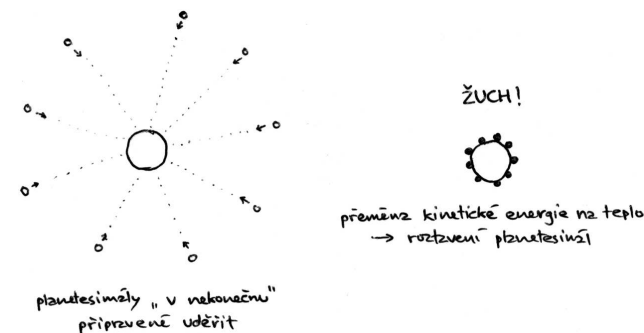 ŽUCH!
přeměna kinetické energie na teplo
→ roztavení planetesimál
planetesimály „v nekonečnu"
připravené udeřit